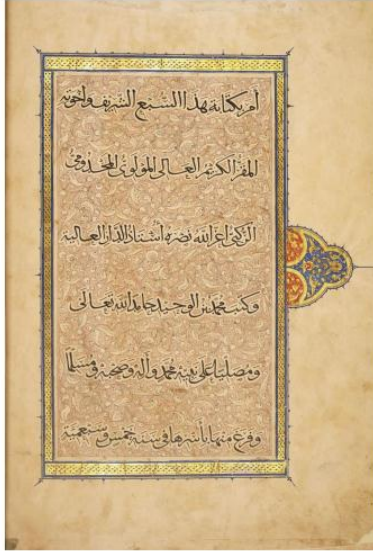 أمر بكتابة هذا السبع الشريف واخوته
المقر الكريم العالي المولوي المخدومي
الركني اعز الله نصره أستاذ الدار العالية
وكتب محمد بن الوحيد حامدا لله تعالى
ومصليا على نبيه محمد وآله وصحبه ومسلما
وفرغ منها بأسرها في سنة خمس وسبعمية